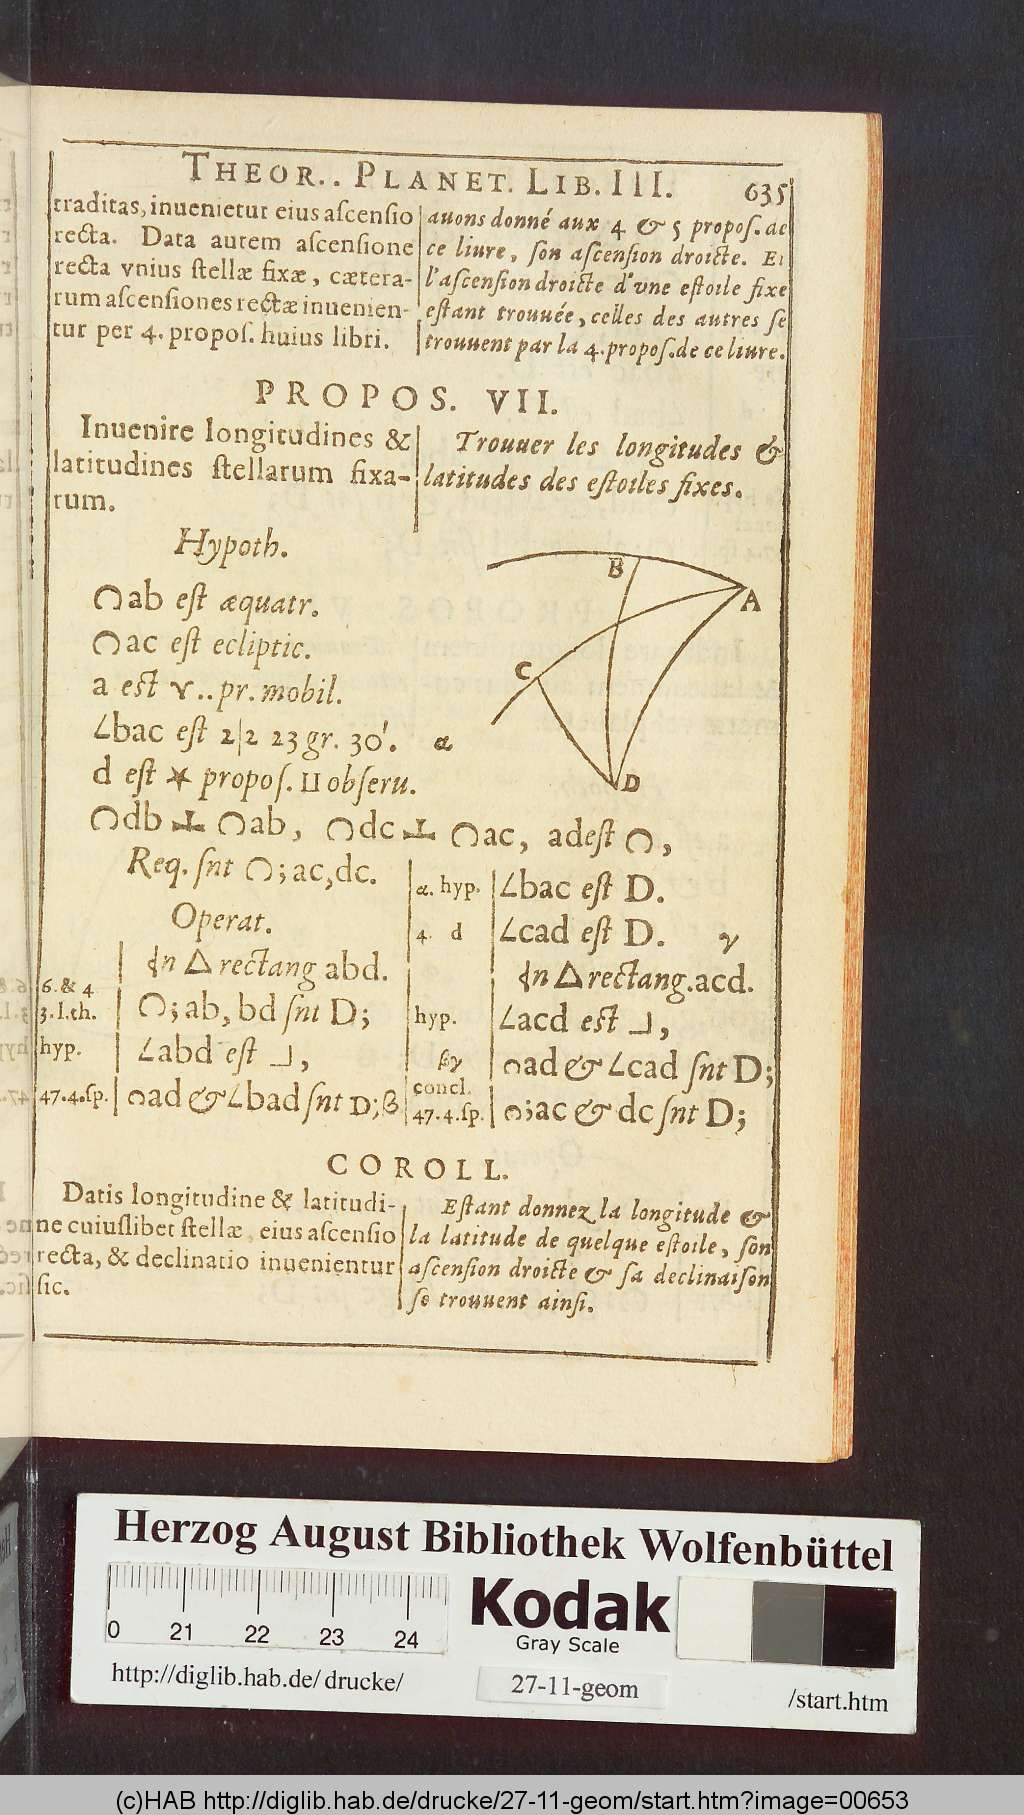 THEOR.. PLANET. LIB. III. 635
traditas, inuenietur eius ascensio
recta. Data autem ascensione
recta vnius stellæ fixæ, cætera-
rum ascensiones rectæ inuenien-
tur per 4. propos. huius libri.
auons donné aux 4 & 5 propos. de
ce liure, son ascension droicte. Et
l'ascension droicte d'vne estoile fixe
estant trouuée, celles des autres se
trouuent par la 4. propos. de ce liure.
PROPOS. VII.
Inuenire longitudines &
latitudines stellarum fixa-
rum.
Trouuer les longitudes &
latitudes des estoiles fixes.
Hypoth.
◠ab est æquatr.
◠ac est ecliptic.
a est ♈.. pr. mobil.
∠bac est 2|2 23 gr. 30'. α
d est ✶ propos. ⊔ obseru.
◠db ⊥ ◠ab, ◠dc ⊥ ◠ac, ad est ◠,
B
A
C
D
Req. snt ◠; ac, dc.
Operat.
in △ rectang abd.
6. & 4
3. l. th. ◠; ab, bd snt D;
hyp. ∠abd est ⅃,
47.4.sp. ◠ad & ∠bad snt D; β
α. hyp. ∠bac est D.
4. d ∠cad est D. γ
in △ rectang. acd.
hyp. ∠acd est ⅃,
βγ ◠ad & ∠cad snt D;
concl.
47.4.sp. ◠; ac & dc snt D;
COROLL.
Datis longitudine & latitudi-
ne cuiuslibet stellæ, eius ascensio
recta, & declinatio inuenientur
sic.
Estant donnez la longitude &
la latitude de quelque estoile, son
ascension droicte & sa declinaison
se trouuent ainsi.
Herzog August Bibliothek Wolfenbüttel
0 21 22 23 24
Kodak
Gray Scale
http://diglib.hab.de/drucke/
27-11-geom
/start.htm
(c)HAB http://diglib.hab.de/drucke/27-11-geom/start.htm?image=00653